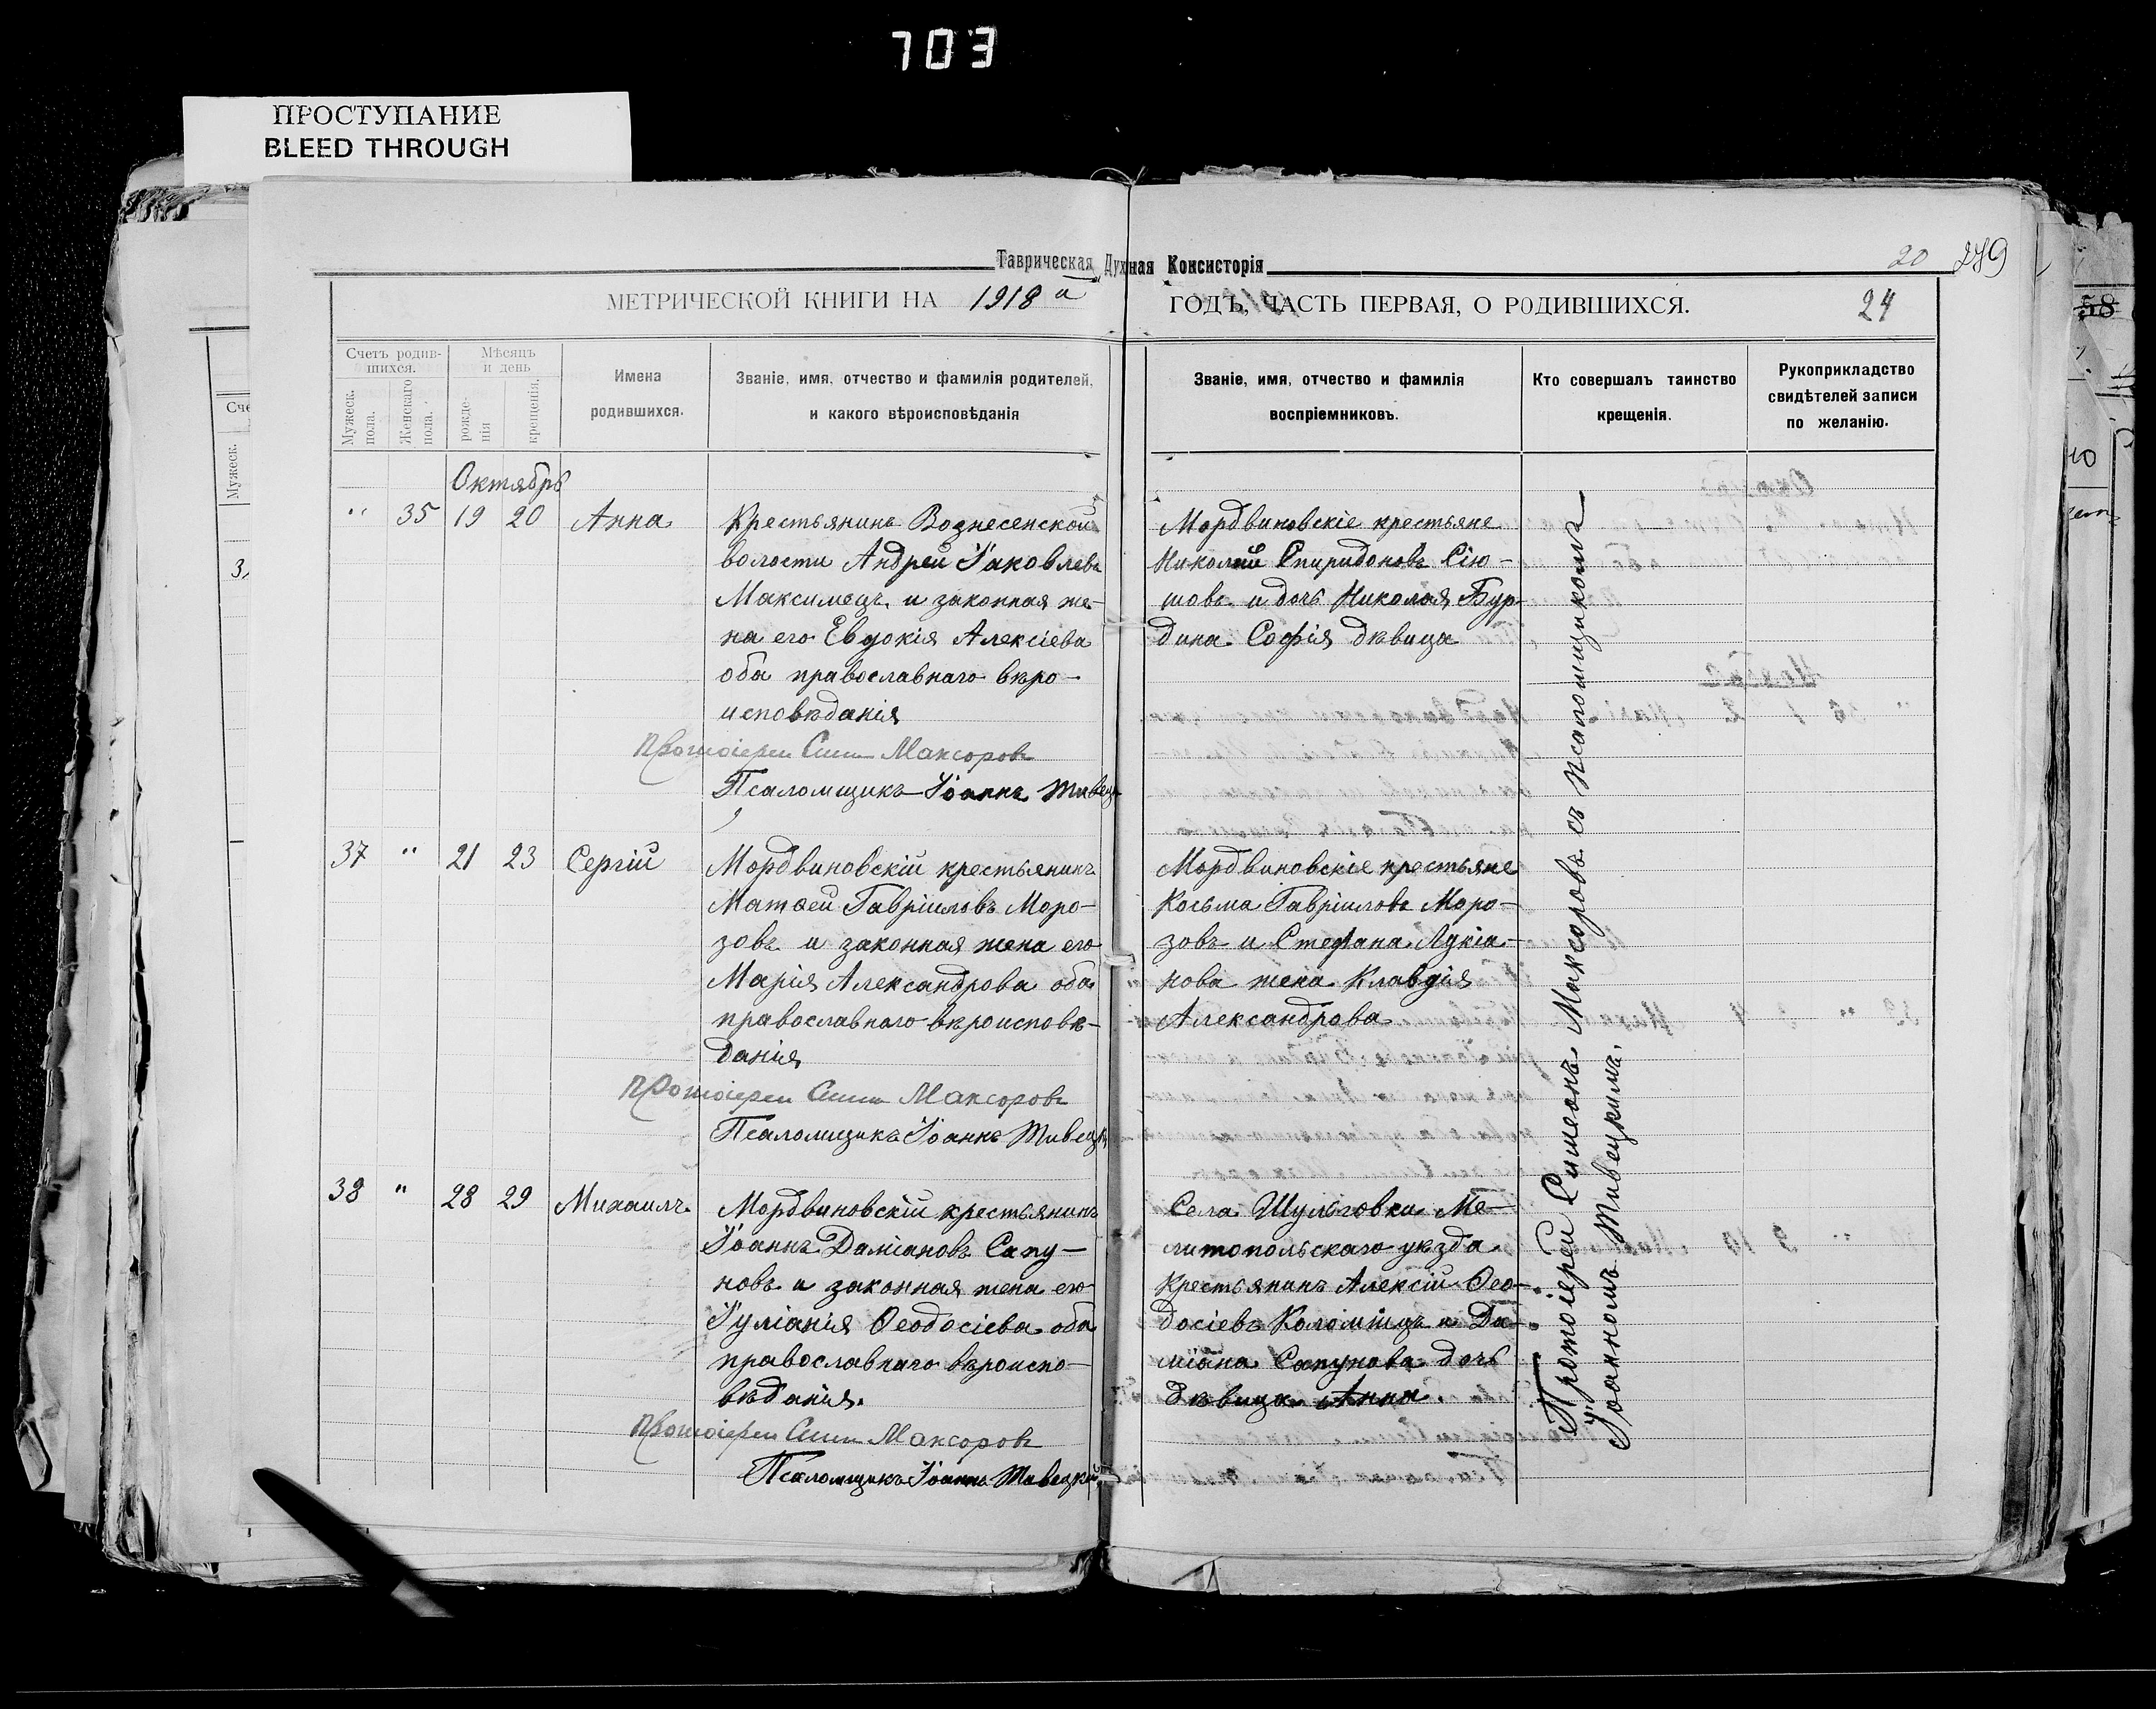 703
ПРОСТУПАНИЕ
BLEED THROUGH
Таврическая Духная Консисторія
20 279
МЕТРИЧЕСКОЙ КНИГИ НА 1918 й ГОДЪ, ЧАСТЬ ПЕРВАЯ, О РОДИВШИХСЯ. 24
58
Счетъ родив-
шихся.
Мужеск.
пола.
Женскаго
пола.
Мѣсяцъ
и день
рожде-
нія
крещенія.
Имена
родившихся.
Званіе, имя, отчество и фамилія родителей,
и какого вѣроисповѣданія
Званіе, имя, отчество и фамилія
воспріемниковъ.
Кто совершалъ таинство
крещенія.
Рукоприкладство
свидѣтелей записи
по желанію.
Мужеск.
Октябрь
" 35 19 20 Анна
Крестьянинъ Вознесенской
волости Андрей Іаковлевъ
Максимецъ и законная же-
на его Евдокія Алексіева
оба православнаго вѣро-
исповѣданія
Протоіерей Сим Максоровъ
Псаломщикъ Іоаннъ
Мордвиновскіе крестьяне
Николай Спиридоновъ Сію-
товъ и дочь Николая Бур-
дина Софія дѣвица
37 " 21 23 Сергій
Мордвиновскій крестьянинъ
Матѳей Гавріиловъ Моро-
зовъ и законная жена его
Марія Александрова оба
православнаго вѣроисповѣ-
данія
Протоіерей Сим Максоровъ
Псаломщикъ Іоаннъ
Мордвиновскіе крестьяне
Косьма Гавріиловъ Моро-
зовъ и Стефана Лукіа-
нова жена Клавдія
Александрова
38 " 28 29 Михаилъ
Мордвиновскій крестьянинъ
Іоаннъ Даміановъ Сапу-
новъ и законная жена его
Іуліанія Ѳеодосіева оба
православнаго вѣроиспо-
вѣданія.
Протоіерей Сим Максоровъ
Псаломщикъ Іоаннъ
Села Шульговки Ме-
литопольскаго уѣзда
крестьянинъ Алексій Ѳео-
досіевъ Коломіецъ и Да-
міана Сапунова дочь
дѣвица Анна.
Протоіерей Симеонъ Максоровъ съ псаломщикомъ
Іоанномъ